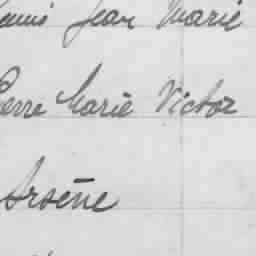 Louis Jean Marie
Pierre Marie Victor
Arsène